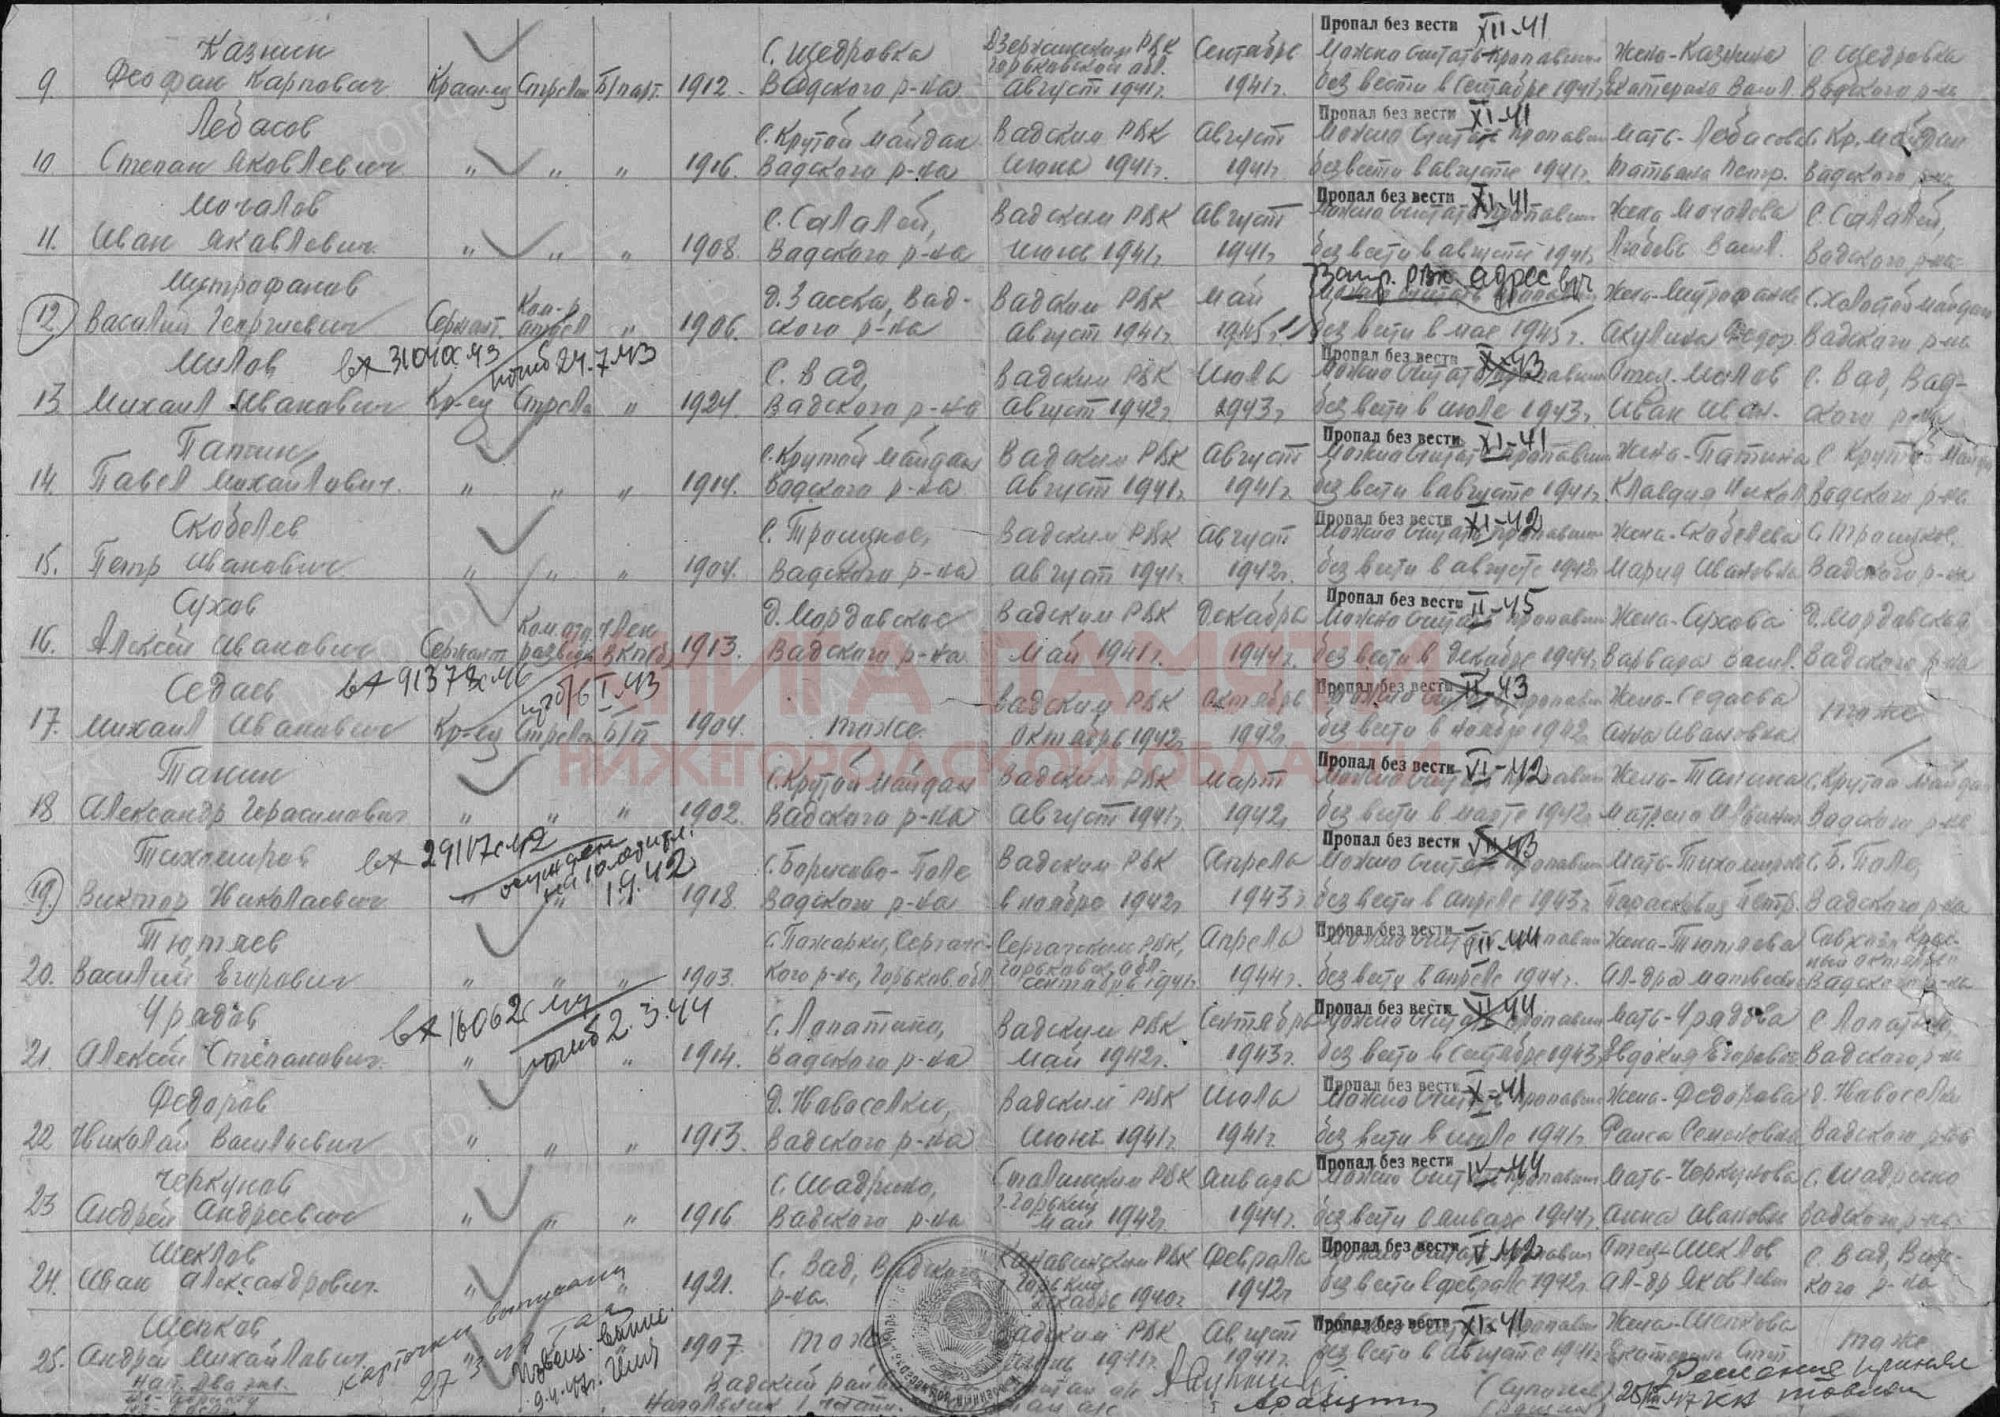 Казнин
9. Феофан Карпович Кр-ец Стрелок Б/парт. 1912. С. Щедровка Вадского р-на Дзержинским РВК Горьковской обл. Август 1941г. Сентябрь 1941г. Пропал без вести XII-41 Можно считать пропавшим без вести в сентябре 1941г. Жена-Казнина Екатерина Васил. С. Щедровка Вадского р-на
Лебасов
10. Степан Яковлевич " " " 1916. С. Крутой Майдан Вадского р-на Вадским РВК Июнь 1941г. Август 1941г. Пропал без вести XI-41 Можно считать пропавшим без вести в августе 1941г. Мать-Лебасова Татьяна Петр. С. Кр. Майдан Вадского р-на
Мочалов
11. Иван Яковлевич " " " 1908. С. Салалей, Вадского р-на Вадским РВК Июнь 1941г. Август 1941г. Пропал без вести XI-41 Можно считать пропавшим без вести в августе 1941г. Жена Мочалова Любовь Васил. С. Салалей, Вадского р-на
Митрофанов
12 Василий Георгиевич Сержант. " 1906. Вадского р-на Вадским РВК Август 1941г. Май 1945г. РВК адрес без вести в мае 1945г. Жена-Митрофанова Акулина Федор. С. Холостой майдан Вадского р-на
Милов вх 31040с 43 погиб 24.7.43
13 Михаил Иванович Кр-ец Стрелок " 1924. С. Вад, Вадского р-на Вадским РВК Август 1942г. Июль 1943г. Пропал без вести X-43 Можно считать пропавшим без вести в июле 1943г. Отец-Милов Иван Иван. С. Вад, Вадского р-на
Папин
14. Павел Михайлович " " " 1914. С. Крутой Майдан Вадского р-на Вадским РВК Август 1941г. Август 1941г. Пропал без вести XI-41 Можно считать пропавшим без вести в августе 1941г. Клавдия Никол. С. Крутой Майдан Вадского р-на
Скобелев
15. Петр Иванович " " " 1904. Вадского р-на Вадским РВК Август 1941г. Август 1942г. Пропал без вести XI-42 Можно считать пропавшим без вести в августе 1942г. Жена-Скобелева Мария Ивановна Вадского р-на
Сухов
16. Алексей Иванович Сержант Ком. отд. разведк. Член ВКП(б) 1913. Д. Мордовское Вадского р-на Вадским РВК Май 1941г. Декабрь 1944г. Пропал без вести II-45 Можно считать пропавшим без вести в декабре 1944г. Жена-Сухова Варвара Васил. Д. Мордовская Вадского р-на
Седаев вх 91373с 46 I.43
17. Михаил Иванович Кр-ец Стрелок Б/п 1904. тоже Вадским РВК Октябрь 1942г. Октябрь 1942г. Пропал без вести II-43 Можно считать пропавшим без вести в ноябре 1942г. Жена-Седаева Анна Ивановна тоже
Танин
18 Александр Герасимович " " " 1902. С. Крутой Майдан Вадского р-на Вадским РВК Август 1941г. Март 1942г. Пропал без вести VI-42 Можно считать пропавшим без вести в марте 1942г. Жена-Танина Матрена С. Крутой Майдан Вадского р-на
Тихомиров вх 29117с 42 осужден на 10 лет 1.9.42
19. Виктор Николаевич " " " 1918. С. Борисово-Поле Вадского р-на Вадским РВК в ноябре 1942г. Апрель 1943г. Пропал без вести VII-43 Можно считать пропавшим без вести в апреле 1943г. Мать-Тихомирова Парасковия Петр. С. Б. Поле, Вадского р-на
Тютяев
20. Василий Егорович " " " 1903. С. Пожарки, Сергачского р-на, Горьков. обл. Сергачским РВК, Горьковск. обл. Сентябрь 1941г. Апрель 1944г. Пропал без вести VII-44 Можно считать пропавшим без вести в апреле 1944г. Жена-Тютяева Ал-дра Матвеевна Совхоз Красный октябрь Вадского р-на
Урадов вх 16062с 44 погиб 2.3.44
21. Алексей Степанович " 1914. С. Лопатино, Вадского р-на Вадским РВК Май 1942г. Сентябрь 1943г. Пропал без вести II-44 Можно считать пропавшим без вести в сентябре 1943г. Мать-Урадова Евдокия Егоровна С. Лопатино, Вадского р-на
Федоров
22 Николай Васильевич " " " 1913. Д. Новоселки, Вадского р-на Вадским РВК Июнь 1941г. Июль 1941г. Пропал без вести X-41 Можно считать пропавшим без вести в июле 1941г. Жена-Федорова Раиса Семеновна Д. Новоселки Вадского р-на
Черкунов
23 Андрей Андреевич " " " 1916 С. Шадрино, Вадского р-на Сталинским РВК г. Горький Май 1942г. Январь 1944г. Пропал без вести IV-44 Можно считать пропавшим без вести в январе 1944г. Мать-Черкунова Анна Ивановна С. Шадрино Вадского р-на
Шеклов
24. Иван Александрович " " 1921. С. Вад, Вадского р-на. Канавинским РВК г. Горький Декабрь 1940г. Февраль 1942г. Пропал без вести V-42 Можно считать пропавшим без вести в феврале 1942г. Отец-Шеклов Ал-др Яковлевич С. Вад, Вадского р-на
Шепков
25. Андрей Михайлович " 1907. тоже Вадским РВК Июнь 1941г. Август 1941г. Пропал без вести XI-41 Можно считать пропавшим без вести в августе 1941г. Жена-Шепкова Екатерина тоже
карточки выписаны
Вадский рай
КНИГА ПАМЯТИ
НИЖЕГОРОДСКОЙ ОБЛАСТИ